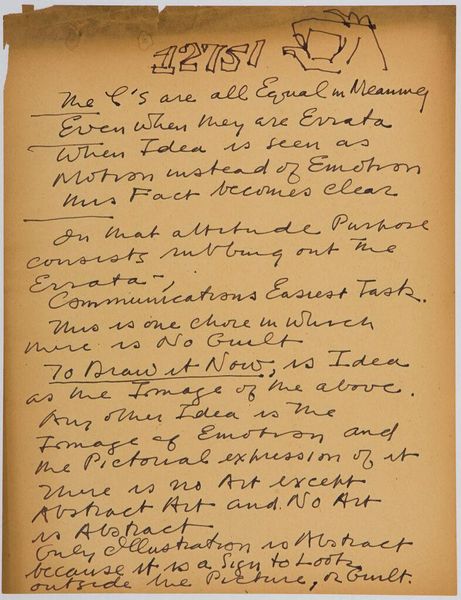 12751
The C's are all Equal in Meaning
Even when they are Errata
When Idea is seen as
Motion instead of Emotion
this Fact becomes clear
In that attitude Purpose
consists rubbing out the
Errata –,
Communications Easiest Task.
This is one chore in which
there is No Guilt
To Draw it Now, is Idea
as the Image of the above.
Any other Idea is the
Image of Emotion and
the Pictorial expression of it
There is no Art except
Abstract Art and No Art
is Abstract
Only Illustration is Abstract
because it is a Sign to Look
outside the Picture, or Guilt.